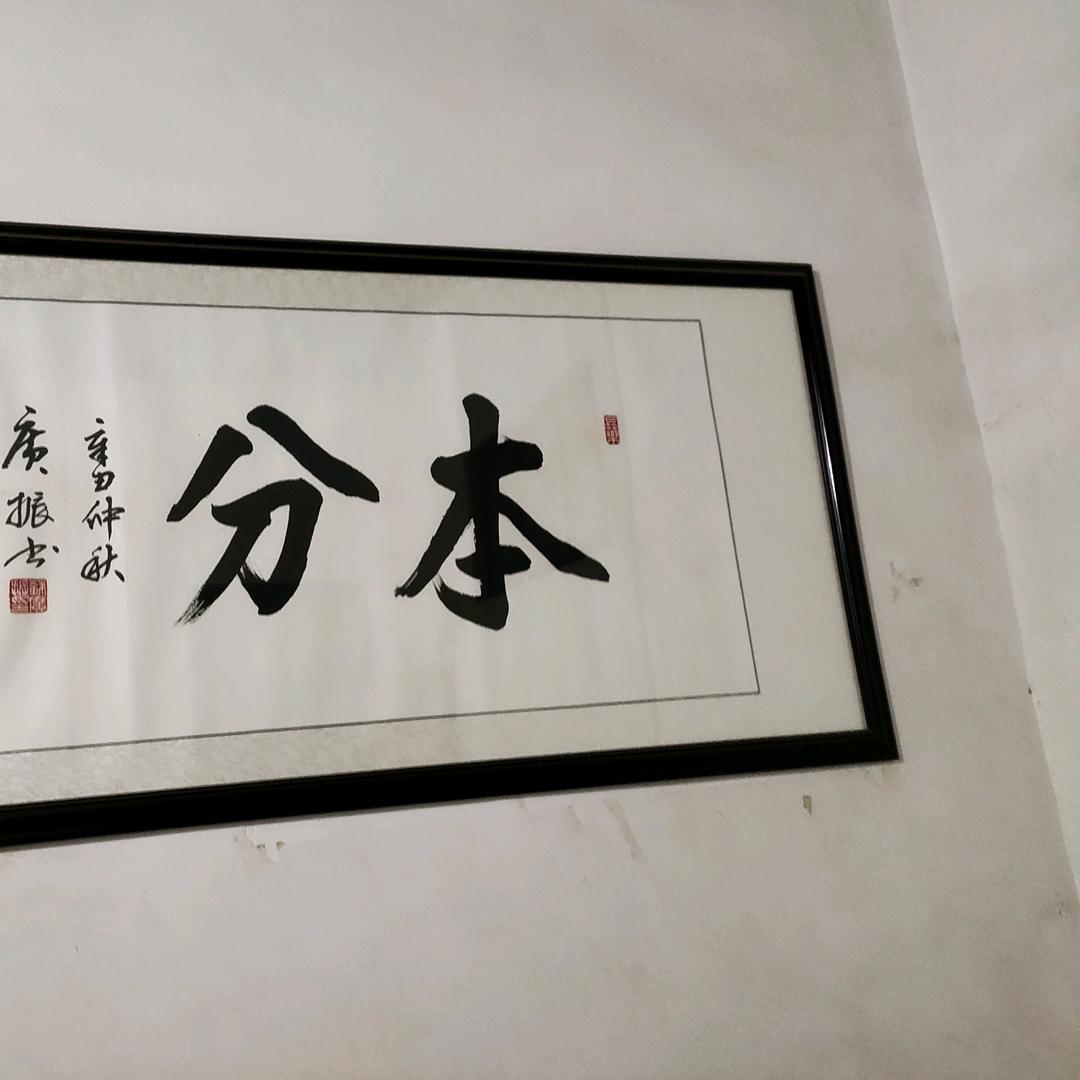 本分
辛丑仲秋
广振书